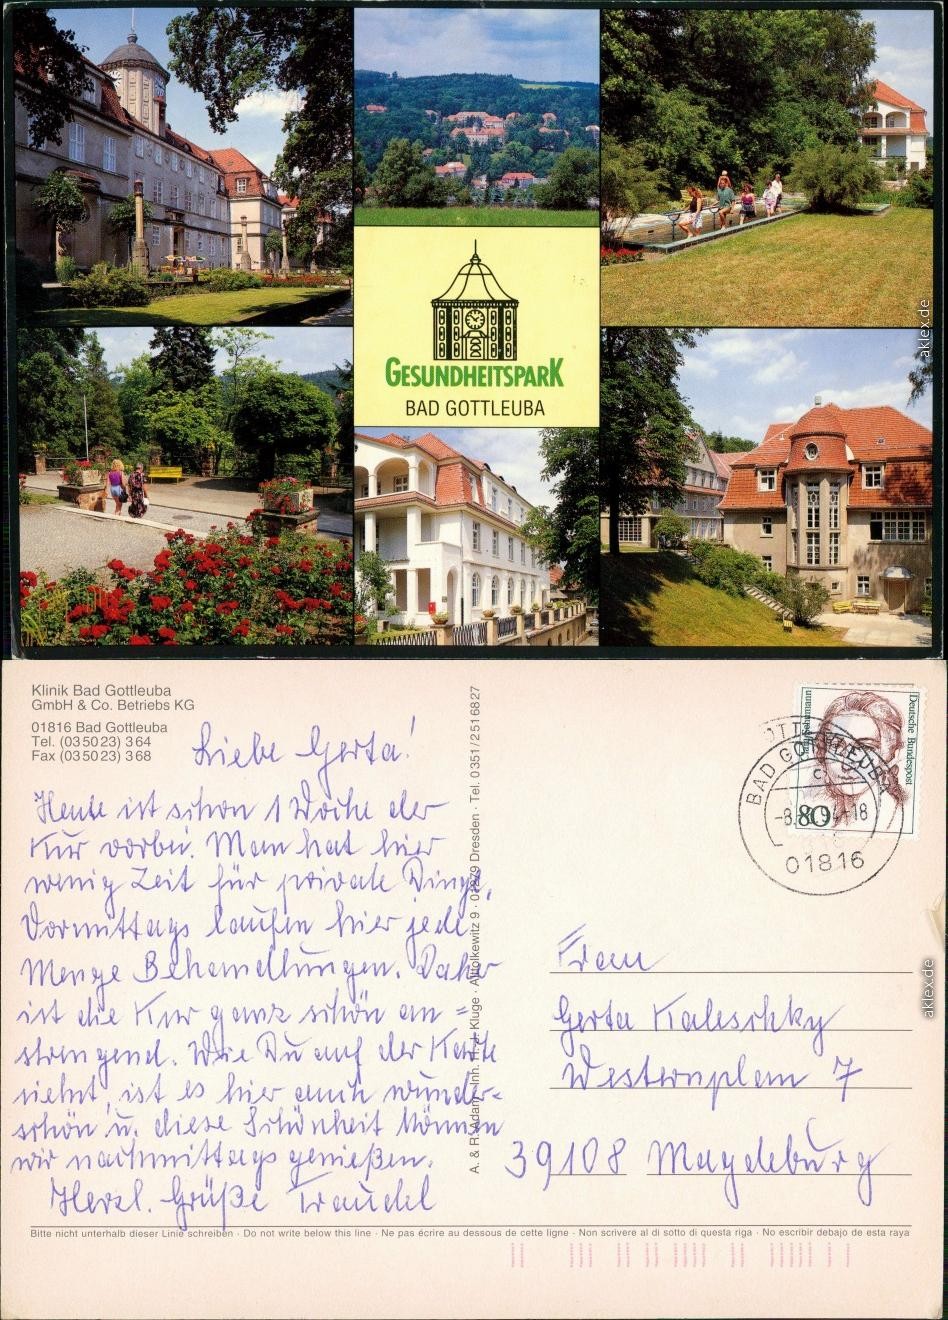 GESUNDHEITSPARK
BAD GOTTLEUBA
aklex.de
Klinik Bad Gottleuba
GmbH & Co. Betriebs KG
01816 Bad Gottleuba
Tel. (035023) 364
Fax (035023) 368
Liebe Gerta!
Heute ist schon 1 Woche der
Kur vorbei. Man hat hier
wenig Zeit für private Dinge.
Vormittags laufen hier jede
Menge Behandlungen. Daher
ist die Kur ganz schön an=
strengend. Wie Du auf der Karte
siehst, ist es hier auch wunder-
schön u. diese Schönheit können
wir nachmittags genießen.
Herzl. Grüße Traudel
A. & R. Adam, Inh. H.-J. Kluge · Alttolkewitz 9 · 01279 Dresden · Tel. 0351/2516827
Deutsche Bundespost
80
BAD GOTTLEUBA
-18
01816
Frau
Gerta Kaleschky
Westernplan 7
39108 Magdeburg
aklex.de
Bitte nicht unterhalb dieser Linie schreiben · Do not write below this line · Ne pas écrire au dessous de cette ligne · Non scrivere al di sotto di questa riga · No escribir debajo de esta raya